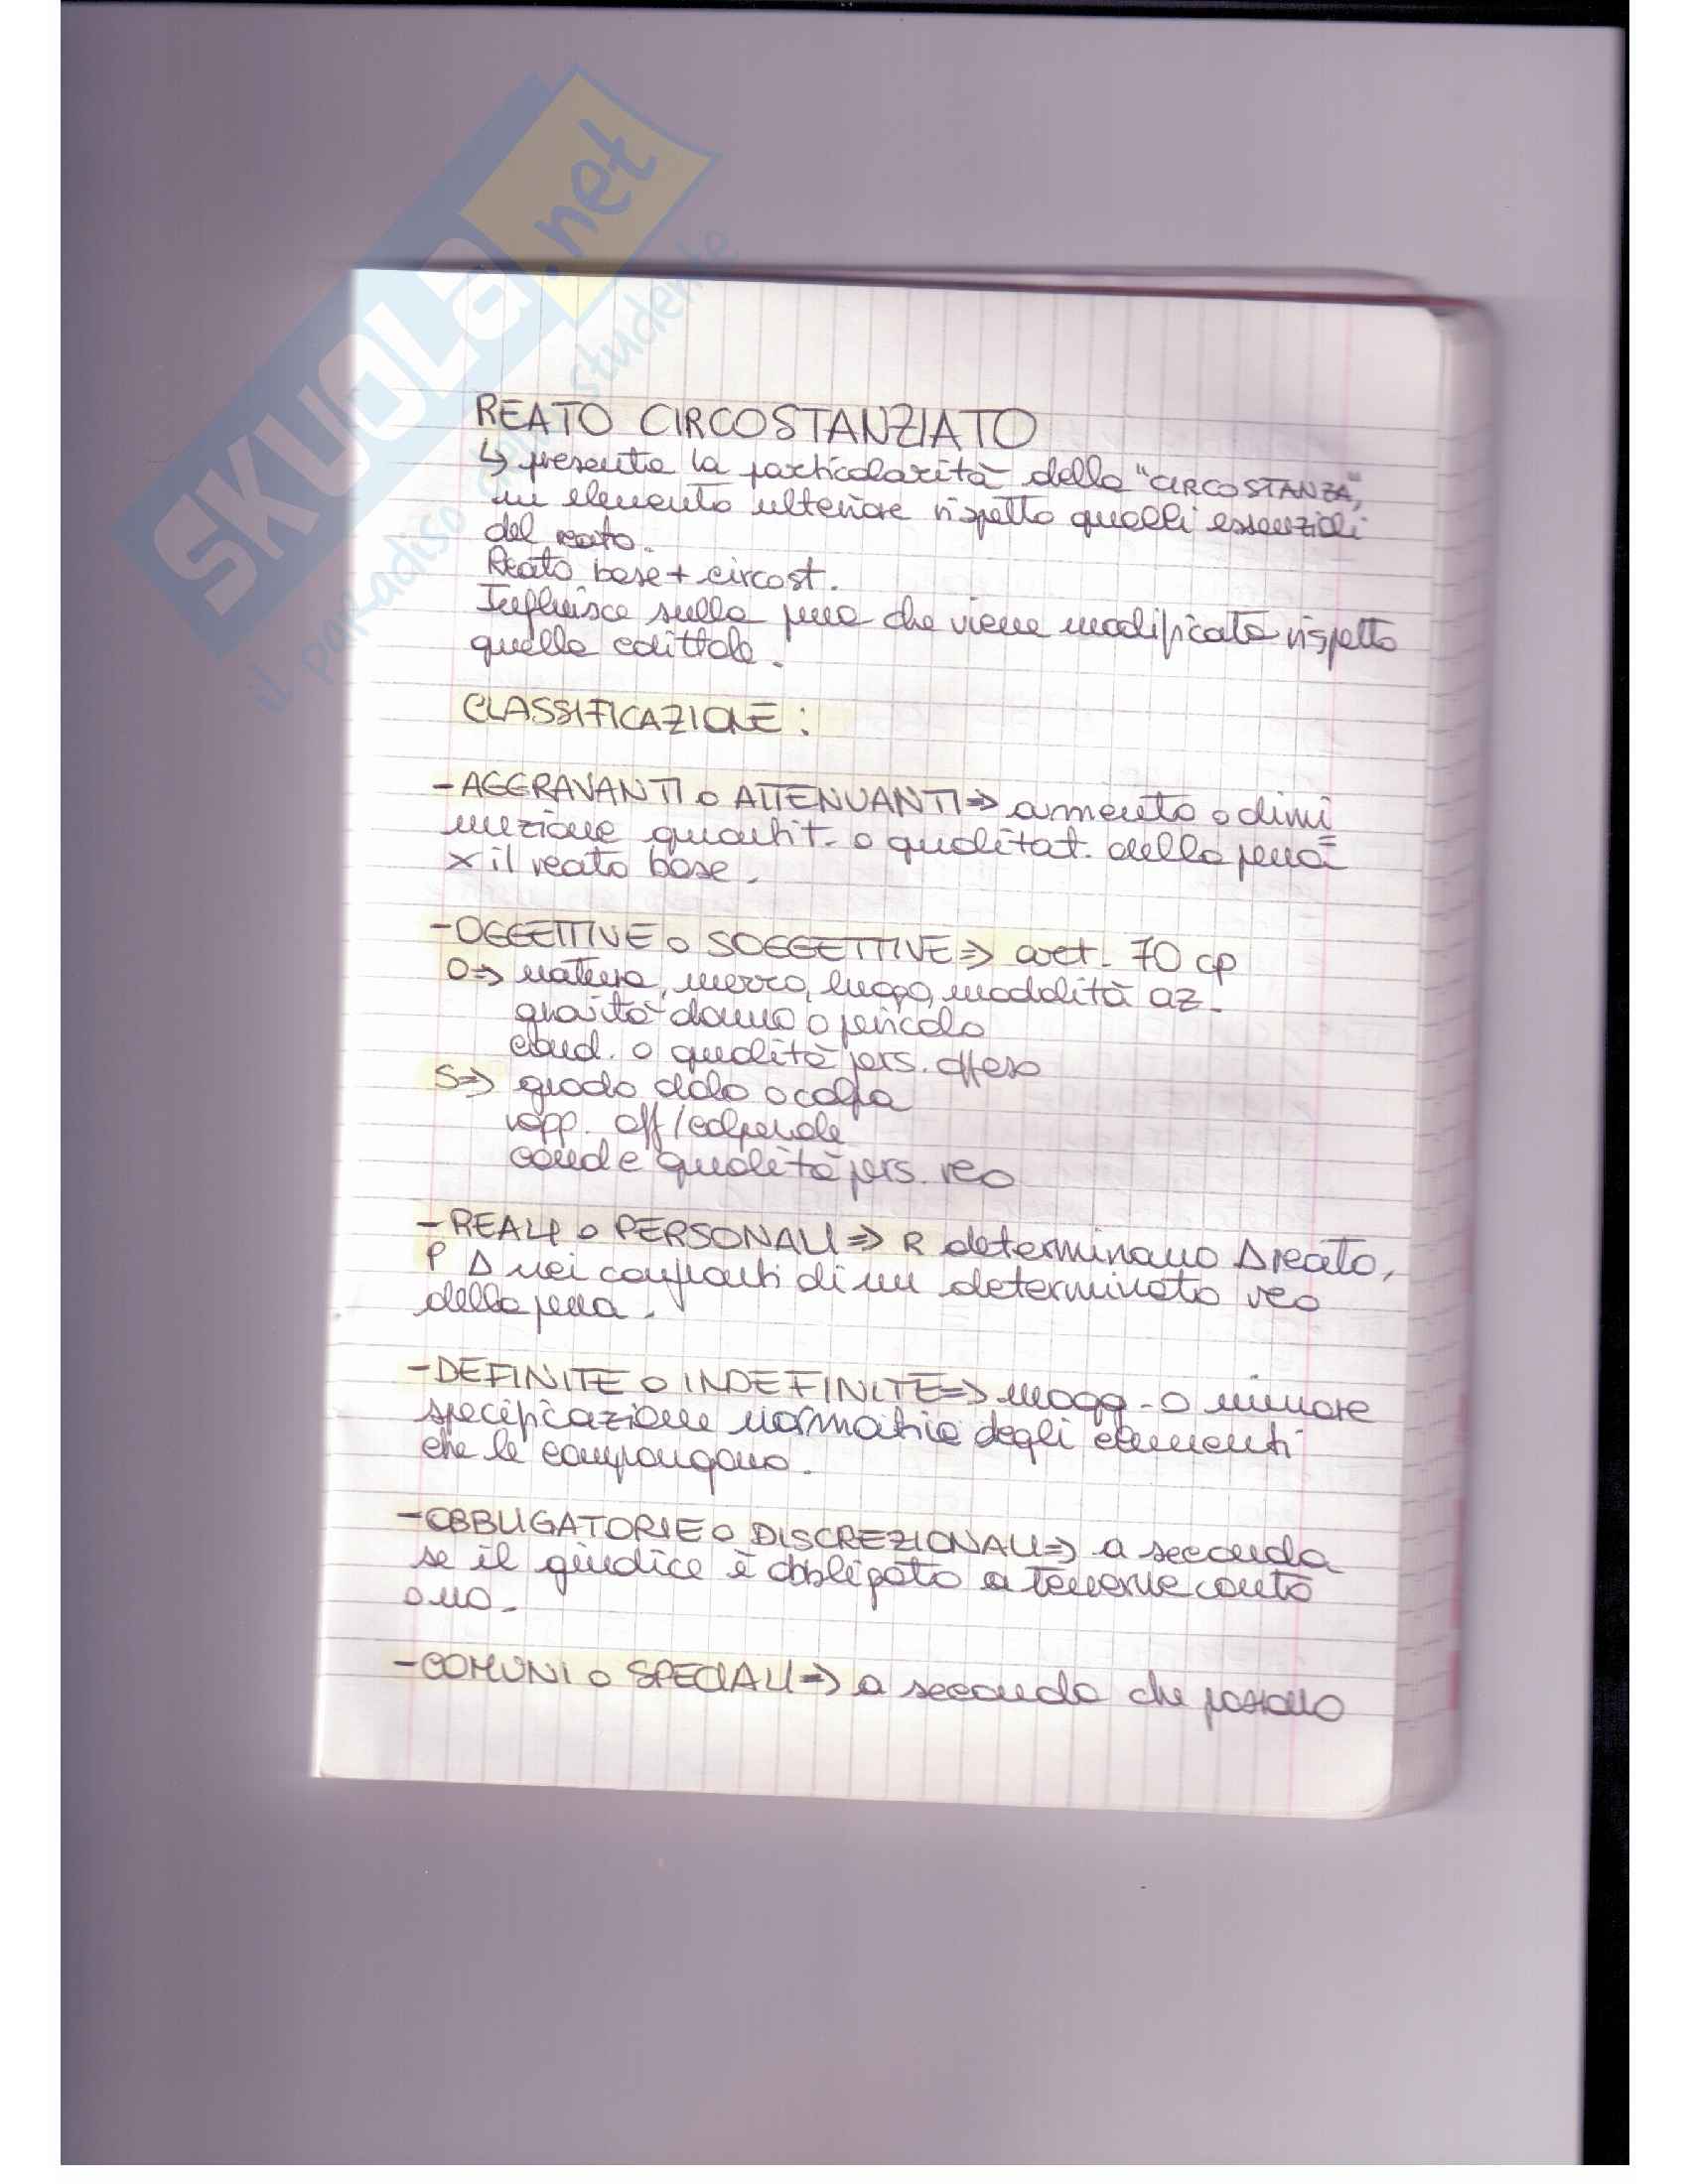 SKUOLa.net
il paradiso dello studente
REATO CIRCOSTANZIATO
↳ presenta la particolarità della "CIRCOSTANZA",
un elemento ulteriore rispetto quelli essenziali
del reato.
Reato base + circost.
Influisce sulla pena che viene modificata rispetto
quella edittale.
CLASSIFICAZIONE:
-AGGRAVANTI o ATTENUANTI => aumento o dimi
nuzione quantit. o qualitat. della pena
x il reato base.
-OGGETTIVE o SOGGETTIVE => art. 70 cp
O=> natura, mezzo, luogo, modalità az.
gravità danno o pericolo
cond. o qualità pers. offeso
S=> grado dolo o colpa
rapp. off/colpevole
cond e qualità pers. reo
-REALI o PERSONALI => R determinano Δ reato,
P Δ nei confronti di un determinato reo
della pena.
-DEFINITE o INDEFINITE => magg. o minore
specificazione normativa degli elementi
che le compongono.
-OBBLIGATORIE o DISCREZIONALI => a seconda
se il giudice è obbligato a tenerne conto
o no.
-COMUNI o SPECIALI => a seconda che possano